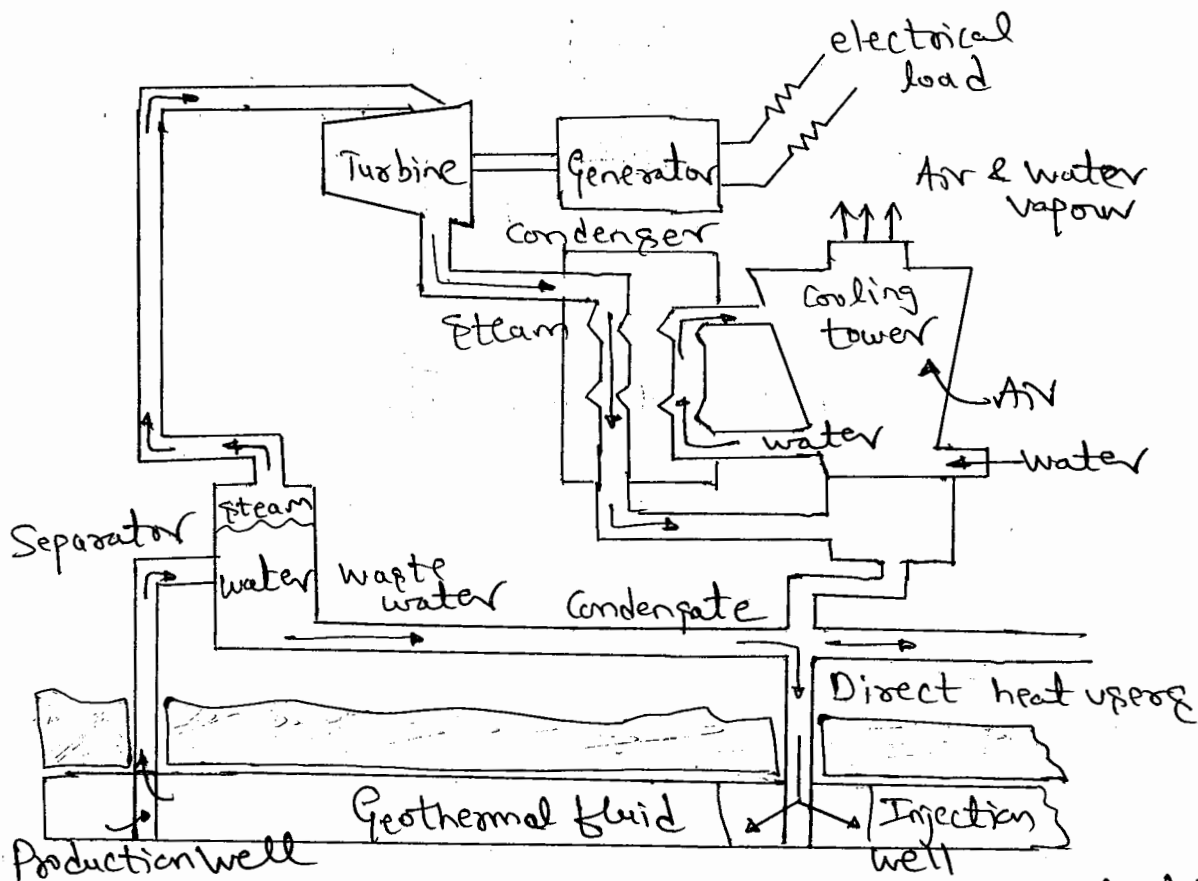 electrical
load
Turbine
Generator
Air & water
vapour
Condenser
Steam
Cooling
tower
Air
water
water
Steam
Separator
water
waste
water
Condensate
Direct heat users
Geothermal fluid
Injection
well
Production well